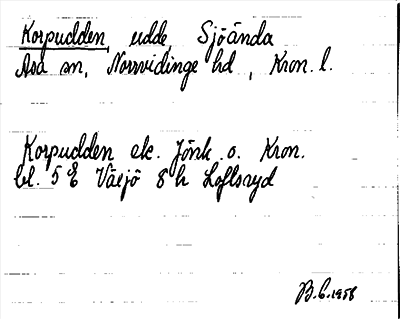 Korpudden, udde, Sjöända
Asa sn, Norrvidinge hd, Kron. l.
Korpudden ek. Jönk. o. Kron.
bl. 5 E Växjö 8 h Loftsryd
B.C. 1958